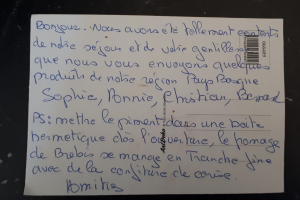 Bonjour. Nous avons été tellement contents
de notre séjour et de votre gentillesse
que nous vous envoyons quelques
produits de notre région Pays Basque
Sophie, Annie, Christian, Bernard
PS: mettre le piment dans une boite
hermetique dès l'ouverture, le fromage
de Brebis se mange en Tranche fine
avec de la confiture de cerise.
Amitiés